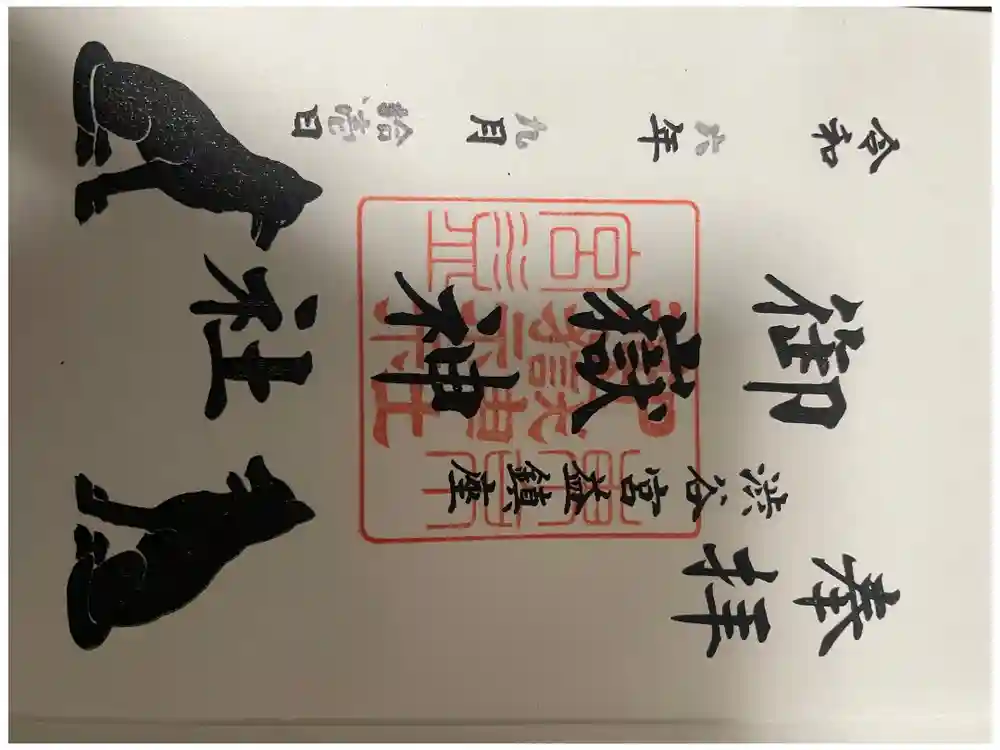 奉拝
渋谷宮益鎮座
御嶽神社
御嶽神社
宮益
令和六年九月拾壱日